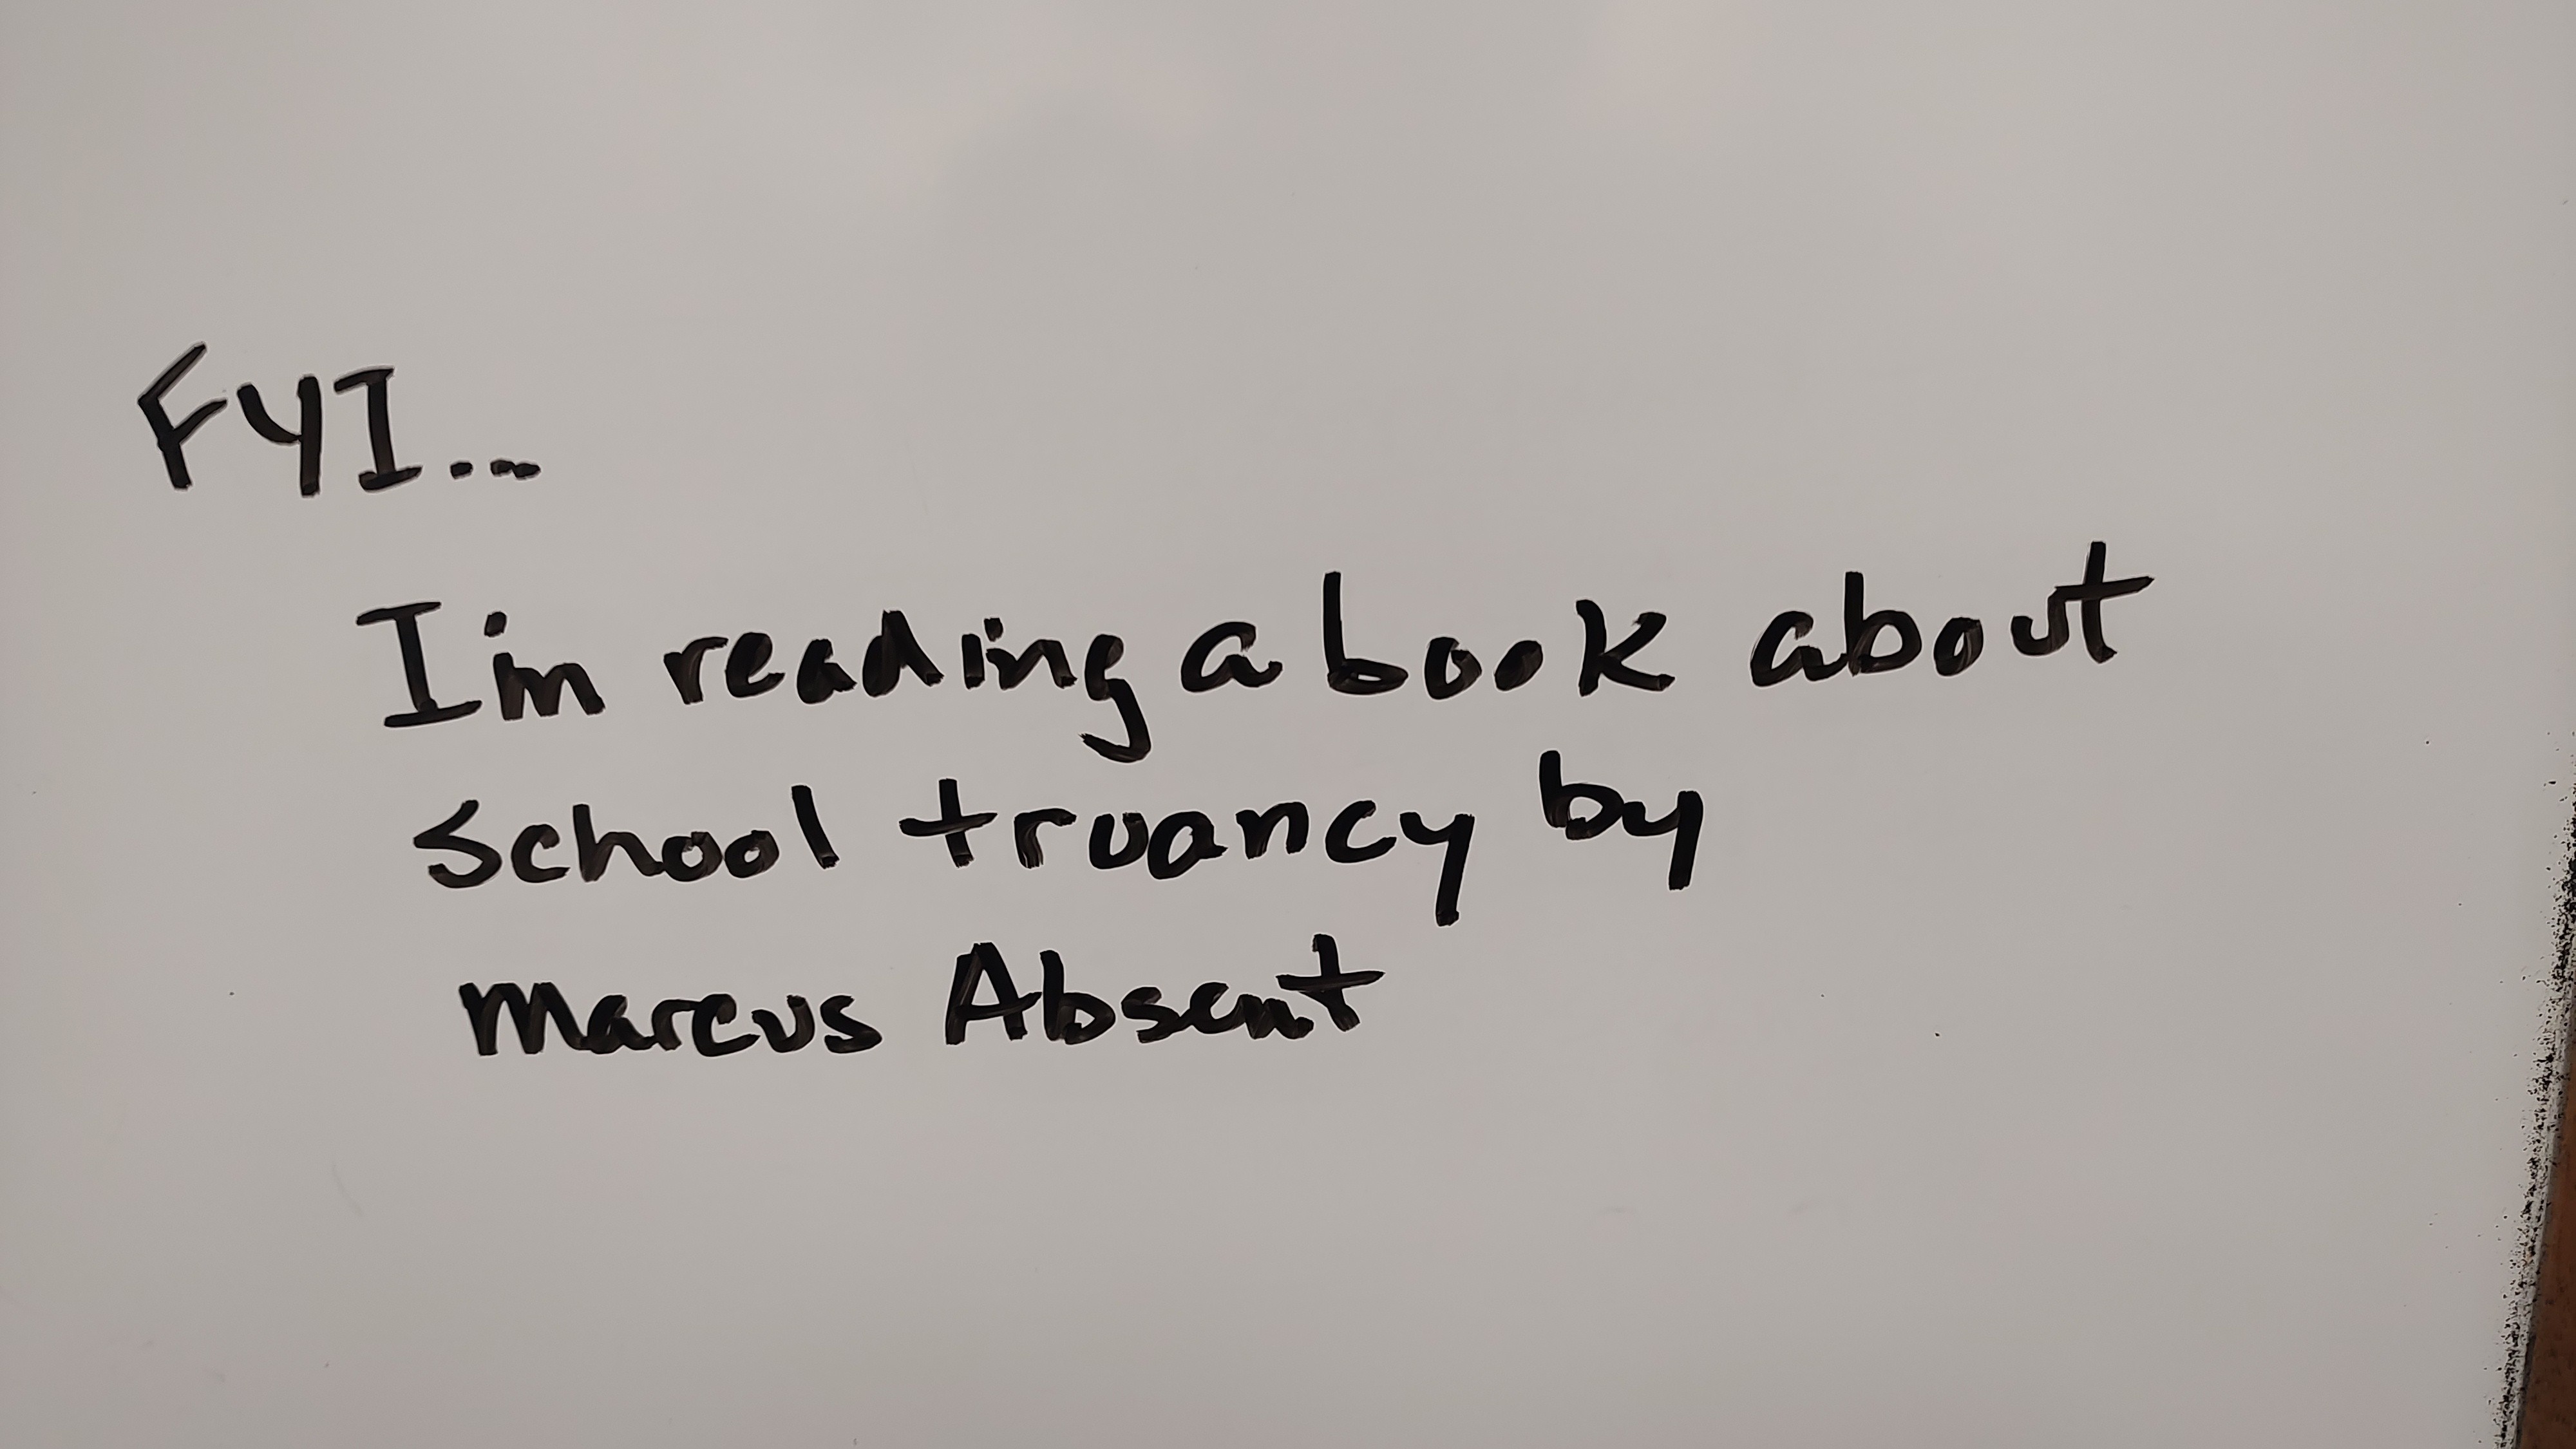 FYI...
I'm reading a book about
School truancy by
Marcus Absent